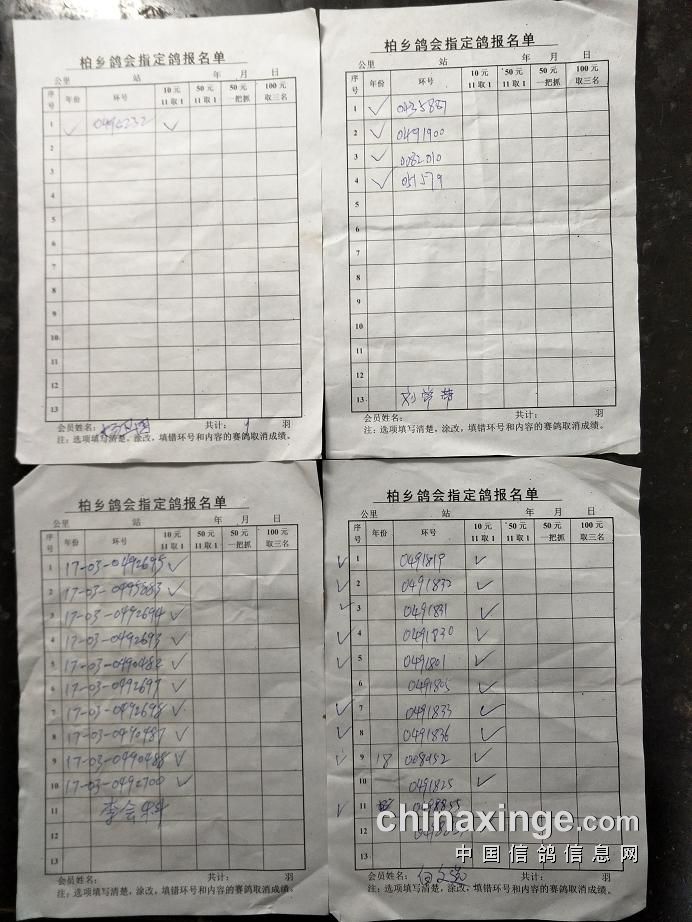 柏乡鸽会指定鸽报名单
公里 站 年 月 日
序号 年份 环号 10元 11取1 50元 11取1 50元 一把抓 100元 取三名
1
2
3
4
5
6
7
8
9
10
11
12
13
会员姓名: 共计: 1 羽
注:选项填写清楚,涂改,填错环号和内容的赛鸽取消成绩。
柏乡鸽会指定鸽报名单
公里 站 年 月 日
序号 年份 环号 10元 11取1 50元 11取1 50元 一把抓 100元 取三名
1 ✓ 0435887
2 ✓ 0491900
3 ✓ 0082010
4 ✓ 051579
5
6
7
8
9
10
11
12
13
会员姓名: 共计: 羽
注:选项填写清楚,涂改,填错环号和内容的赛鸽取消成绩。
柏乡鸽会指定鸽报名单
公里 站 年 月 日
序号 年份 环号 10元 11取1 50元 11取1 50元 一把抓 100元 取三名
1 17-03-0492695 ✓
2 17-03-0495883 ✓
3 17-03-0492694 ✓
4 17-03-0492693 ✓
5 17-03-0490482 ✓
6 17-03-0492697 ✓
7 17-03-0492698 ✓
8 17-03-0490487 ✓
9 17-03-0490488 ✓
10 17-03-0492700 ✓
11 李会
12
13
会员姓名: 共计: 羽
注:选项填写清楚,涂改,填错环号和内容的赛鸽取消成绩。
柏乡鸽会指定鸽报名单
公里 站 年 月 日
序号 年份 环号 10元 11取1 50元 11取1 50元 一把抓 100元 取三名
✓ 1 0491819 ✓
✓ 2 0491832 ✓
✓ 3 0491831 ✓
✓ 4 0491830 ✓
✓ 5 0491801 ✓
6 0491805 ✓
✓ 7 0491833 ✓
✓ 8 0491836 ✓
✓ 9 18 008952 ✓
10 0491825 ✓
✓ 11
12
13
会员姓名: 共计: 羽
注:选项填写清楚,涂改,填错环号和内容的赛鸽取消成绩。
chinaxinge.com
中国信鸽信息网